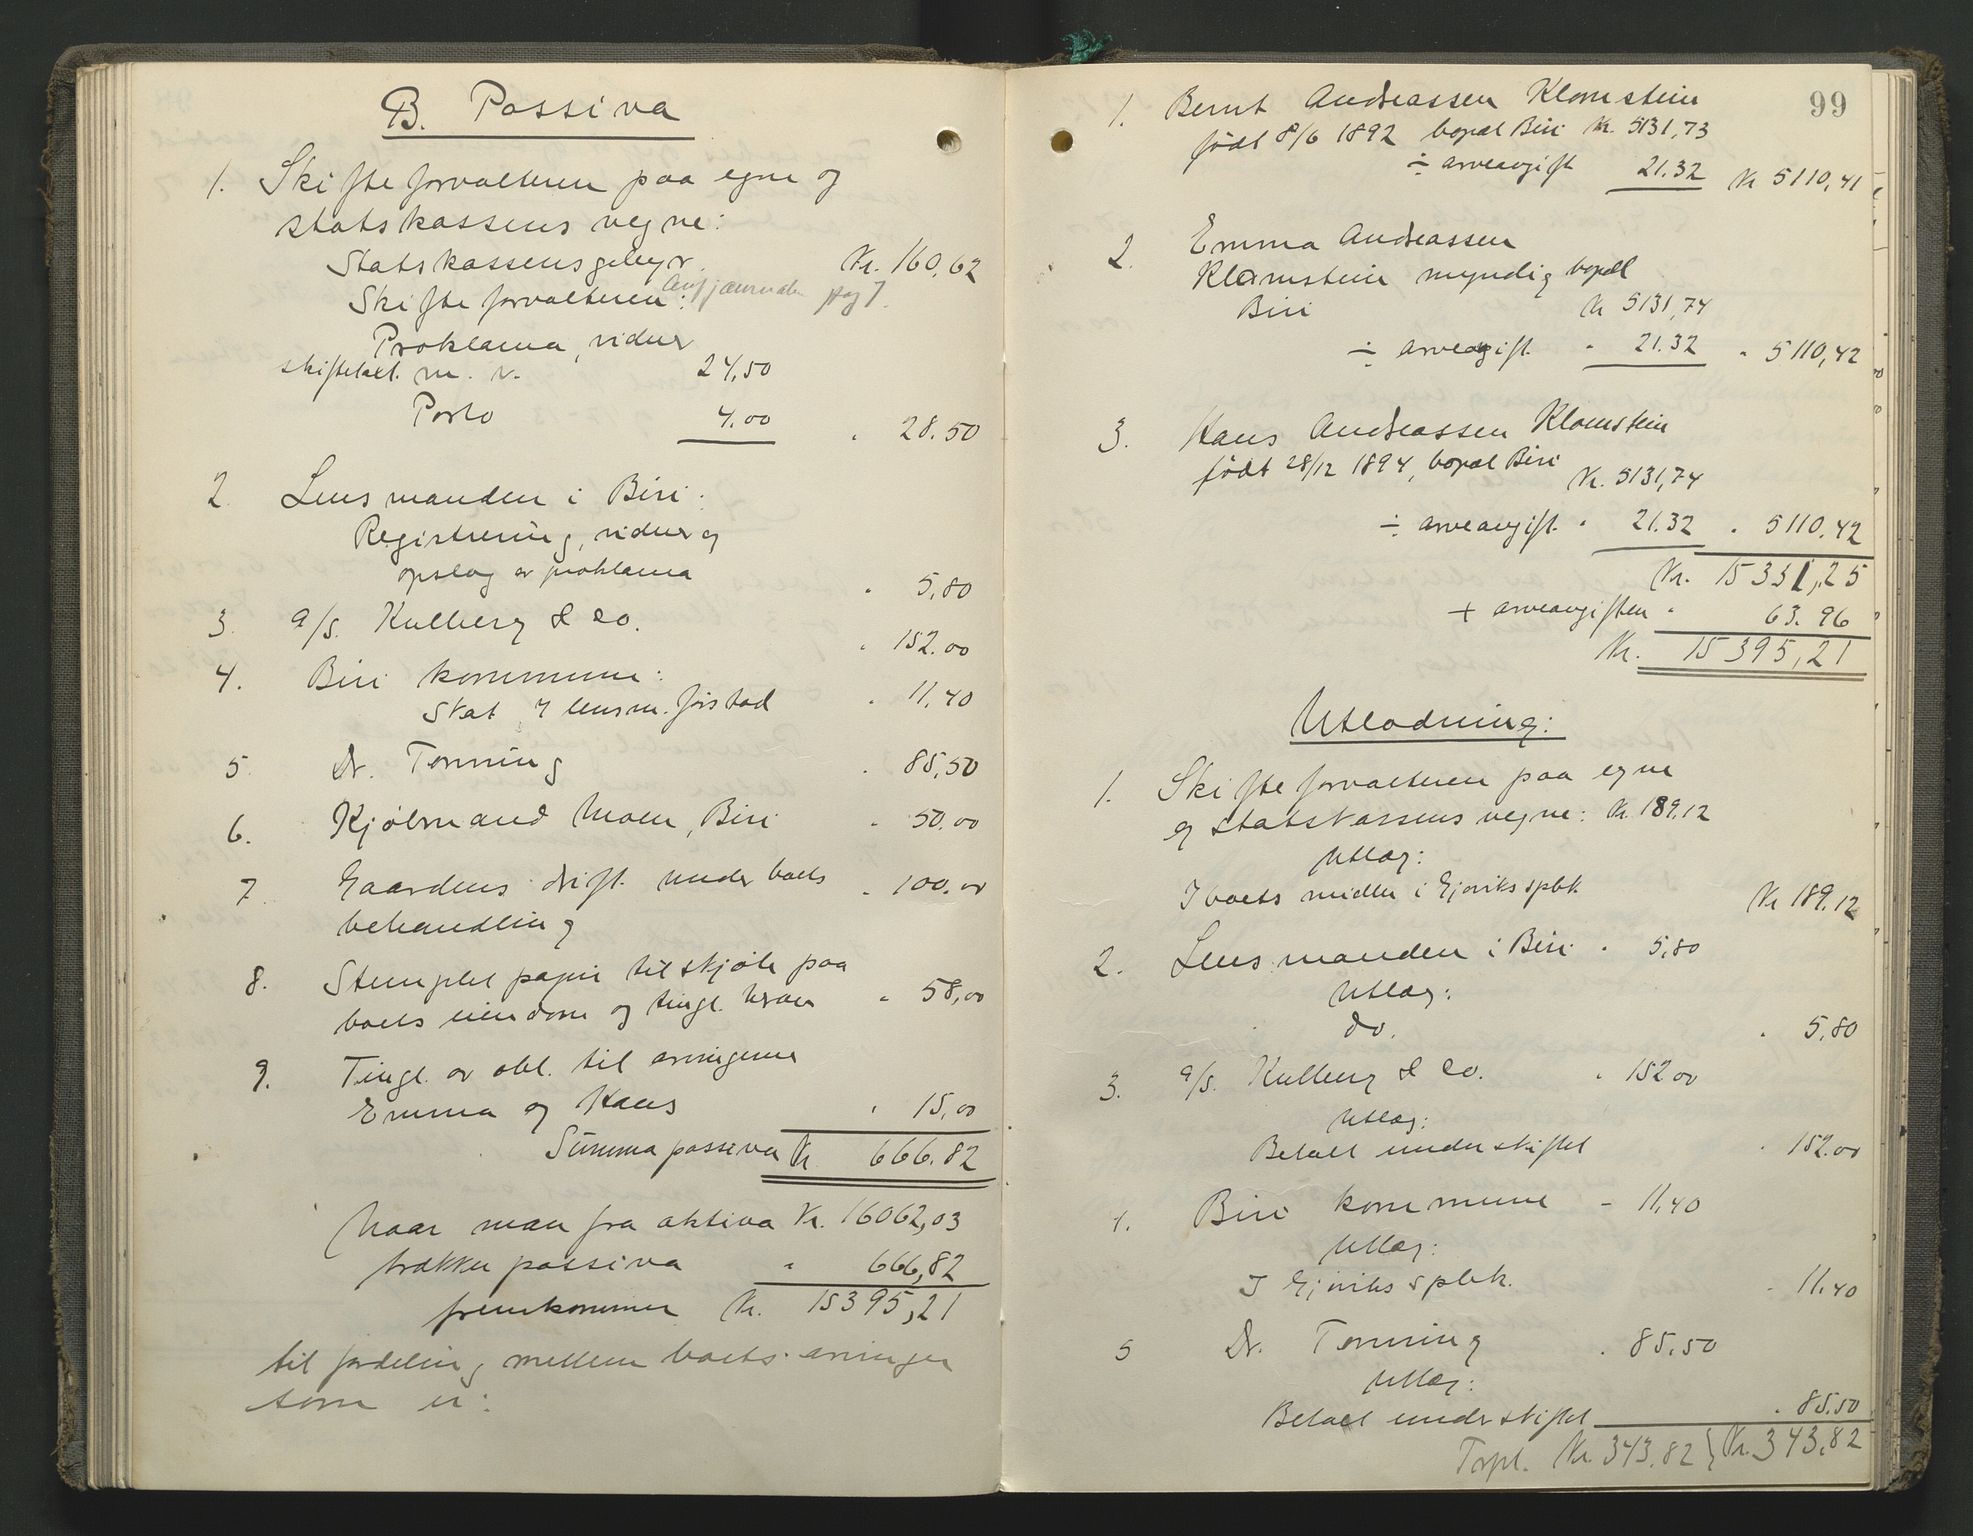 B. Passiva
1. Skifteforvalteren paa egne og
statskassens vegne:
Statskassens gebyr. Kr. 160,62
Skifteforvalteren: pag 7.
Proklama, vidner
skiftetakt. m. v. 24,50
Porto 4.00 " 28.50
2. Lensmanden i Biri:
Registrering, vidner og
opslag av proklama " 5,80
3. A/S. Kulberg & Co. " 152.00
4. Biri kommune:
Skat " 11,40
5. Dr. Tonning " 85,50
6. Kjøbmand Moen, Biri " 50.00
7. Gaardens drift under boets " 100.00
behandling
8. Stemplet papir til skjøte paa
boets eiendom og tingl. herav " 58,00
9. Tingl. av obl. til arvingerne
Emma og Hans " 15,00
Summa passiva Kr 666.82
Naar man fra aktiva Kr. 16062,03
trækker passiva " 666,82
fremkommer Kr. 15395,21
til fordeling mellem boets arvinger
som er:
99
1. Bernt Andreassen Klomstein
født 8/6 1892 bopæl Biri Kr. 5131,73
÷ arveavgift 21.32 Kr 5110,41
2. Emma Andreassen
Klomstein myndig bopæl
Biri Kr 5131,74
÷ arveavgift. " 21.32 " 5110,42
3. Hans Andreassen Klomstein
født 28/12 1894, bopæl Biri
Kr. 5131,74
÷ arveavgift. " 21.32 " 5110.42
Kr. 15331,25
+ arveavgiften " 63.96
Kr. 15395,21
Utlodning:
1. Skifteforvalteren paa egne
og statskassens vegne: Kr. 189.12
Utlæg:
I boets midler i Gjøviks spbk Kr 189.12
2. Lensmanden i Biri " 5,80
Utlæg:
do. " 5,80
3. A/S. Kulberg & Co. " 152.00
Utlæg:
Betalt under skiftet " 152.00
4. Biri kommune " 11,40
Utlæg:
I Gjøviks spbk. " 11.40
5 Dr. Tonning " 85,50
Utlæg:
Betalt under skiftet " 85.50
Trspt. Kr. 343.82 } Kr. 343,82